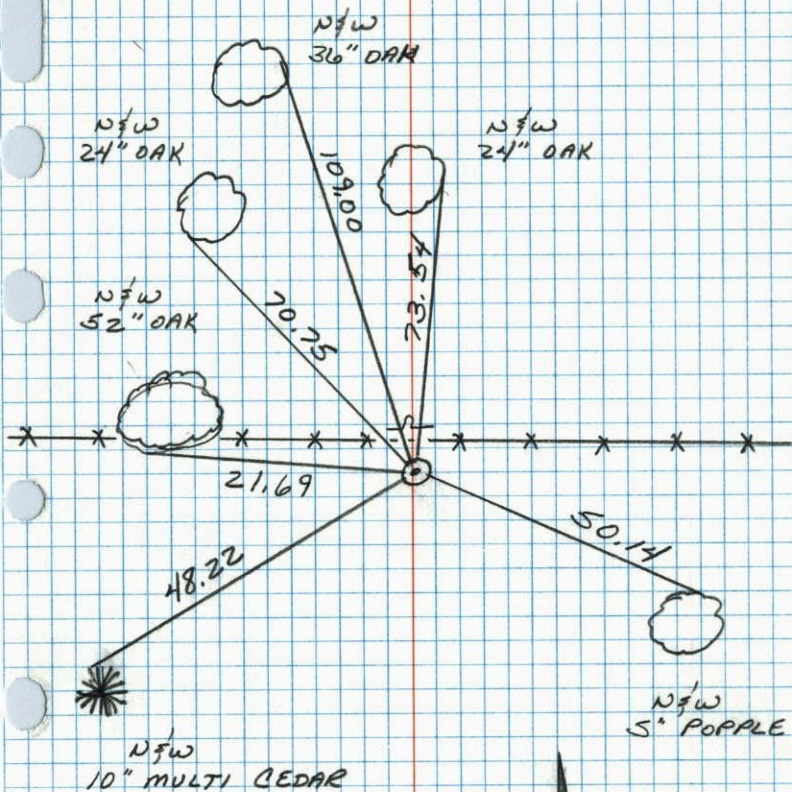 N&W
36" OAK
N&W
24" OAK
N&W
24" OAK
109.00
73.54
70.75
N&W
52" OAK
21.69
48.22
50.14
N&W
5" POPPLE
N&W
10" MULTI CEDAR